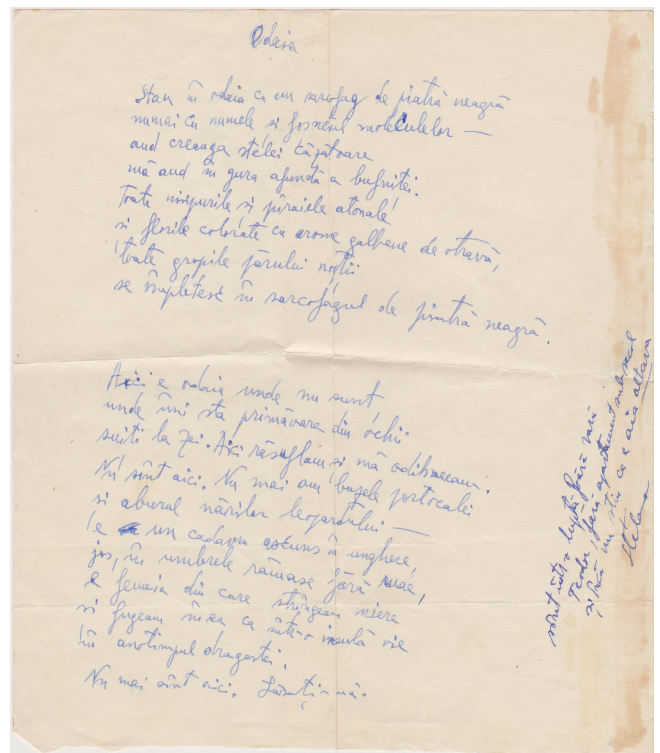 Odaia
Stau în odaia ca un sarcofag de piatră neagră
numai cu numele și foșnetul moleculelor —
aud creanga stelei căzătoare
mă aud în gura afundă a bufniței.
Toate nisipurile și pîraiele atonale
și florile colorate cu arome galbene de otravă,
toate gropile părului nopții
se împletesc în sarcofagul de piatră neagră.
Aici e odaia unde nu sunt,
unde îmi sta primăvara din ochii
suiți la zei. Aici răsuflam și mă odihneam.
Nu sînt aici. Nu mai am buzele portocalii
și aburul nărilor leopardului —
e un cadavru ascuns în unghere,
jos, în umbrele rămase fără
e femeia din care strîngeam miere
și fugeam în ea ca într-o insulă vie
în anotimpul dragostei.
Nu mai sînt aici. Lăsați-mă.
sînt într-o luptă fără
Teodor, fără apartament
și încă nu știu ce e aia altceva